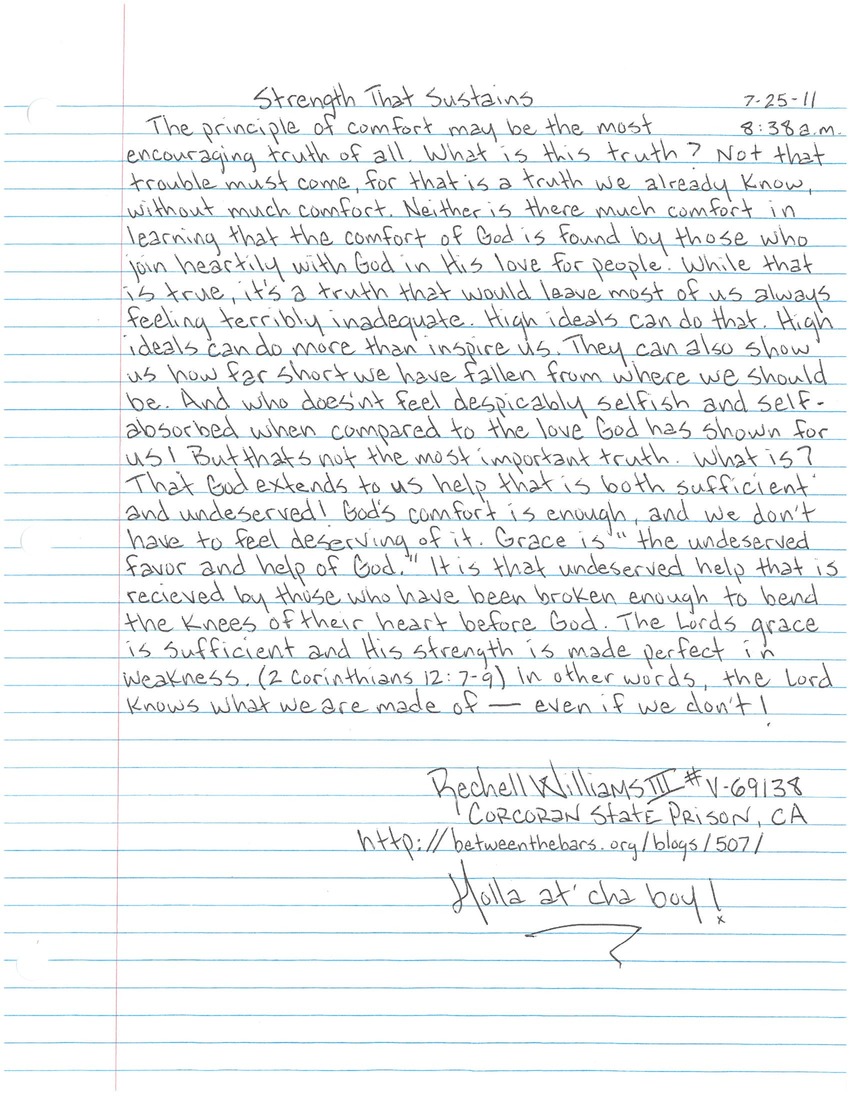 Strength That Sustains 7-25-11
The principle of comfort may be the most 8:38a.m.
encouraging truth of all. What is this truth? Not that
trouble must come, for that is a truth we already know,
without much comfort. Neither is there much comfort in
learning that the comfort of God is found by those who
join heartily with God in His love for people. While that
is true, it's a truth that would leave most of us always
feeling terribly inadequate. High ideals can do that. High
ideals can do more than inspire us. They can also show
us how far short we have fallen from where we should
be. And who does'nt feel despicably selfish and self-
absorbed when compared to the love God has shown for
us! But thats not the most important truth. What is?
That God extends to us help that is both sufficient
and undeserved! God's comfort is enough, and we don't
have to feel deserving of it. Grace is "the undeserved
favor and help of God." It is that undeserved help that is
recieved by those who have been broken enough to bend
the knees of their heart before God. The Lords grace
is sufficient and His strength is made perfect in
weakness. (2 Corinthians 12:7-9) in other words, the Lord
knows what we are made of — even if we don't!
Rechell Williams III #V-69138
Corcoran State Prison, CA
http://betweenthebars.org/blogs/507/
Holla at' cha boy!